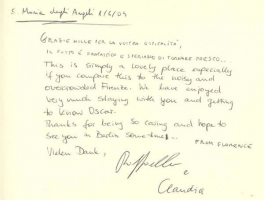 S. Maria degli Angeli 8/6/09
GRAZIE MILLE PER LA VOSTRA OSPITALITÀ,
IL POSTO È FANTASTICO E SPERIAMO DI TORNARE PRESTO...
This is simply a lovely place especially
if you compare this to the noisy and
overcrowded Firenze. We have enjoyed
very much staying with you and getting
to know Oscar.
Thanks for being so caring and hope to
see you in Berlin sometimes...
FROM FLORENCE
Vielen Dank,
Raffaella
e
Claudia